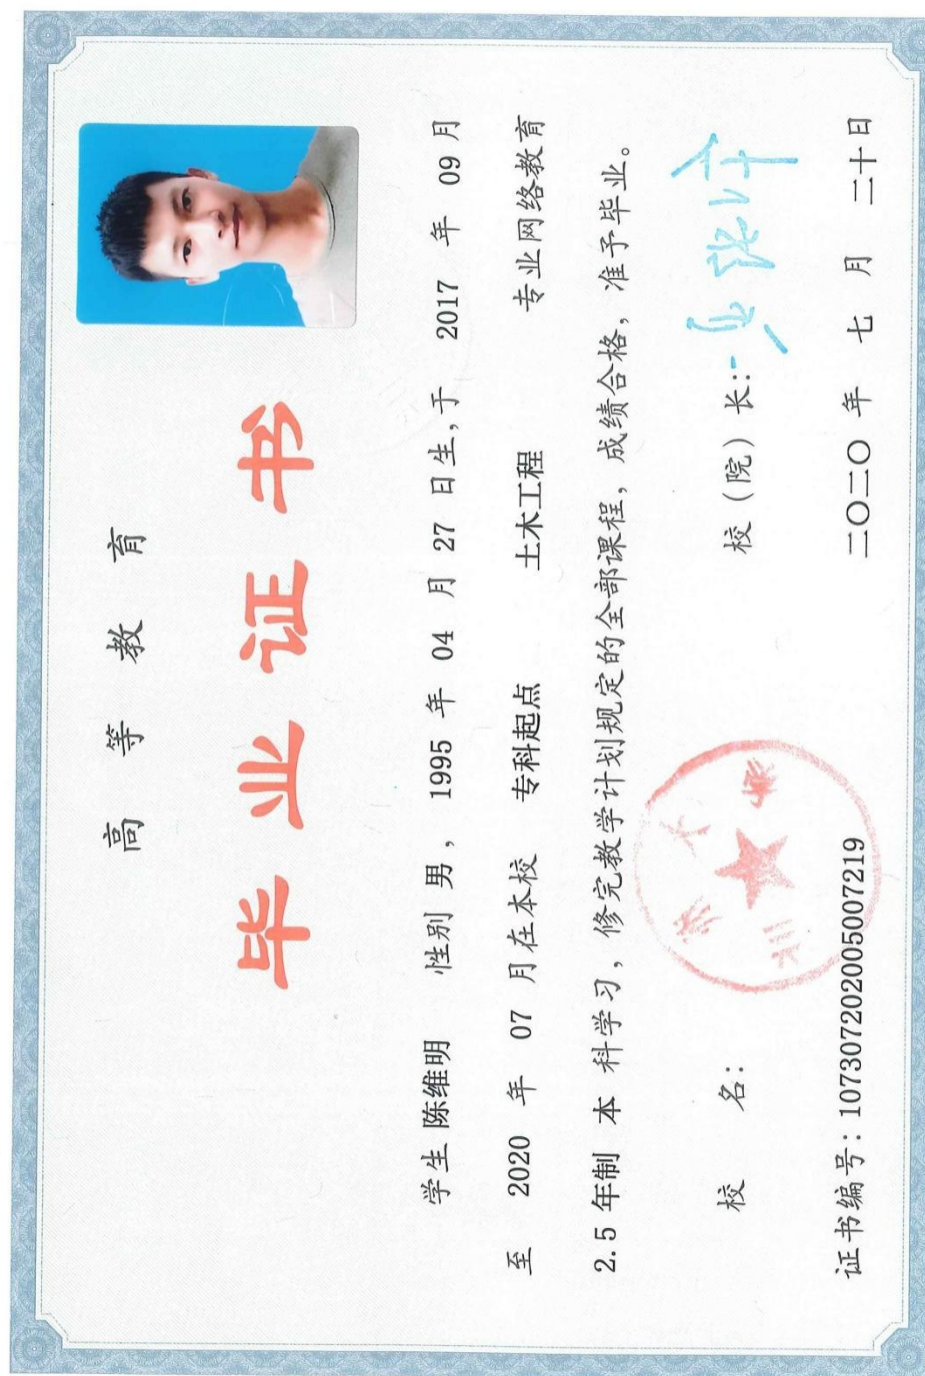 高等教育
毕业证书
学生 陈维明 性别 男 ， 1995 年 04 月 27 日生，于 2017 年 09 月
至 2020 年 07 月在本校 专科起点 土木工程 专业网络教育
2.5 年制 本 科学习，修完教学计划规定的全部课程，成绩合格，准予毕业。
校 名： 校（院）长：
兰州大学
证书编号：107307202005007219 二〇二〇 年 七 月 二十日